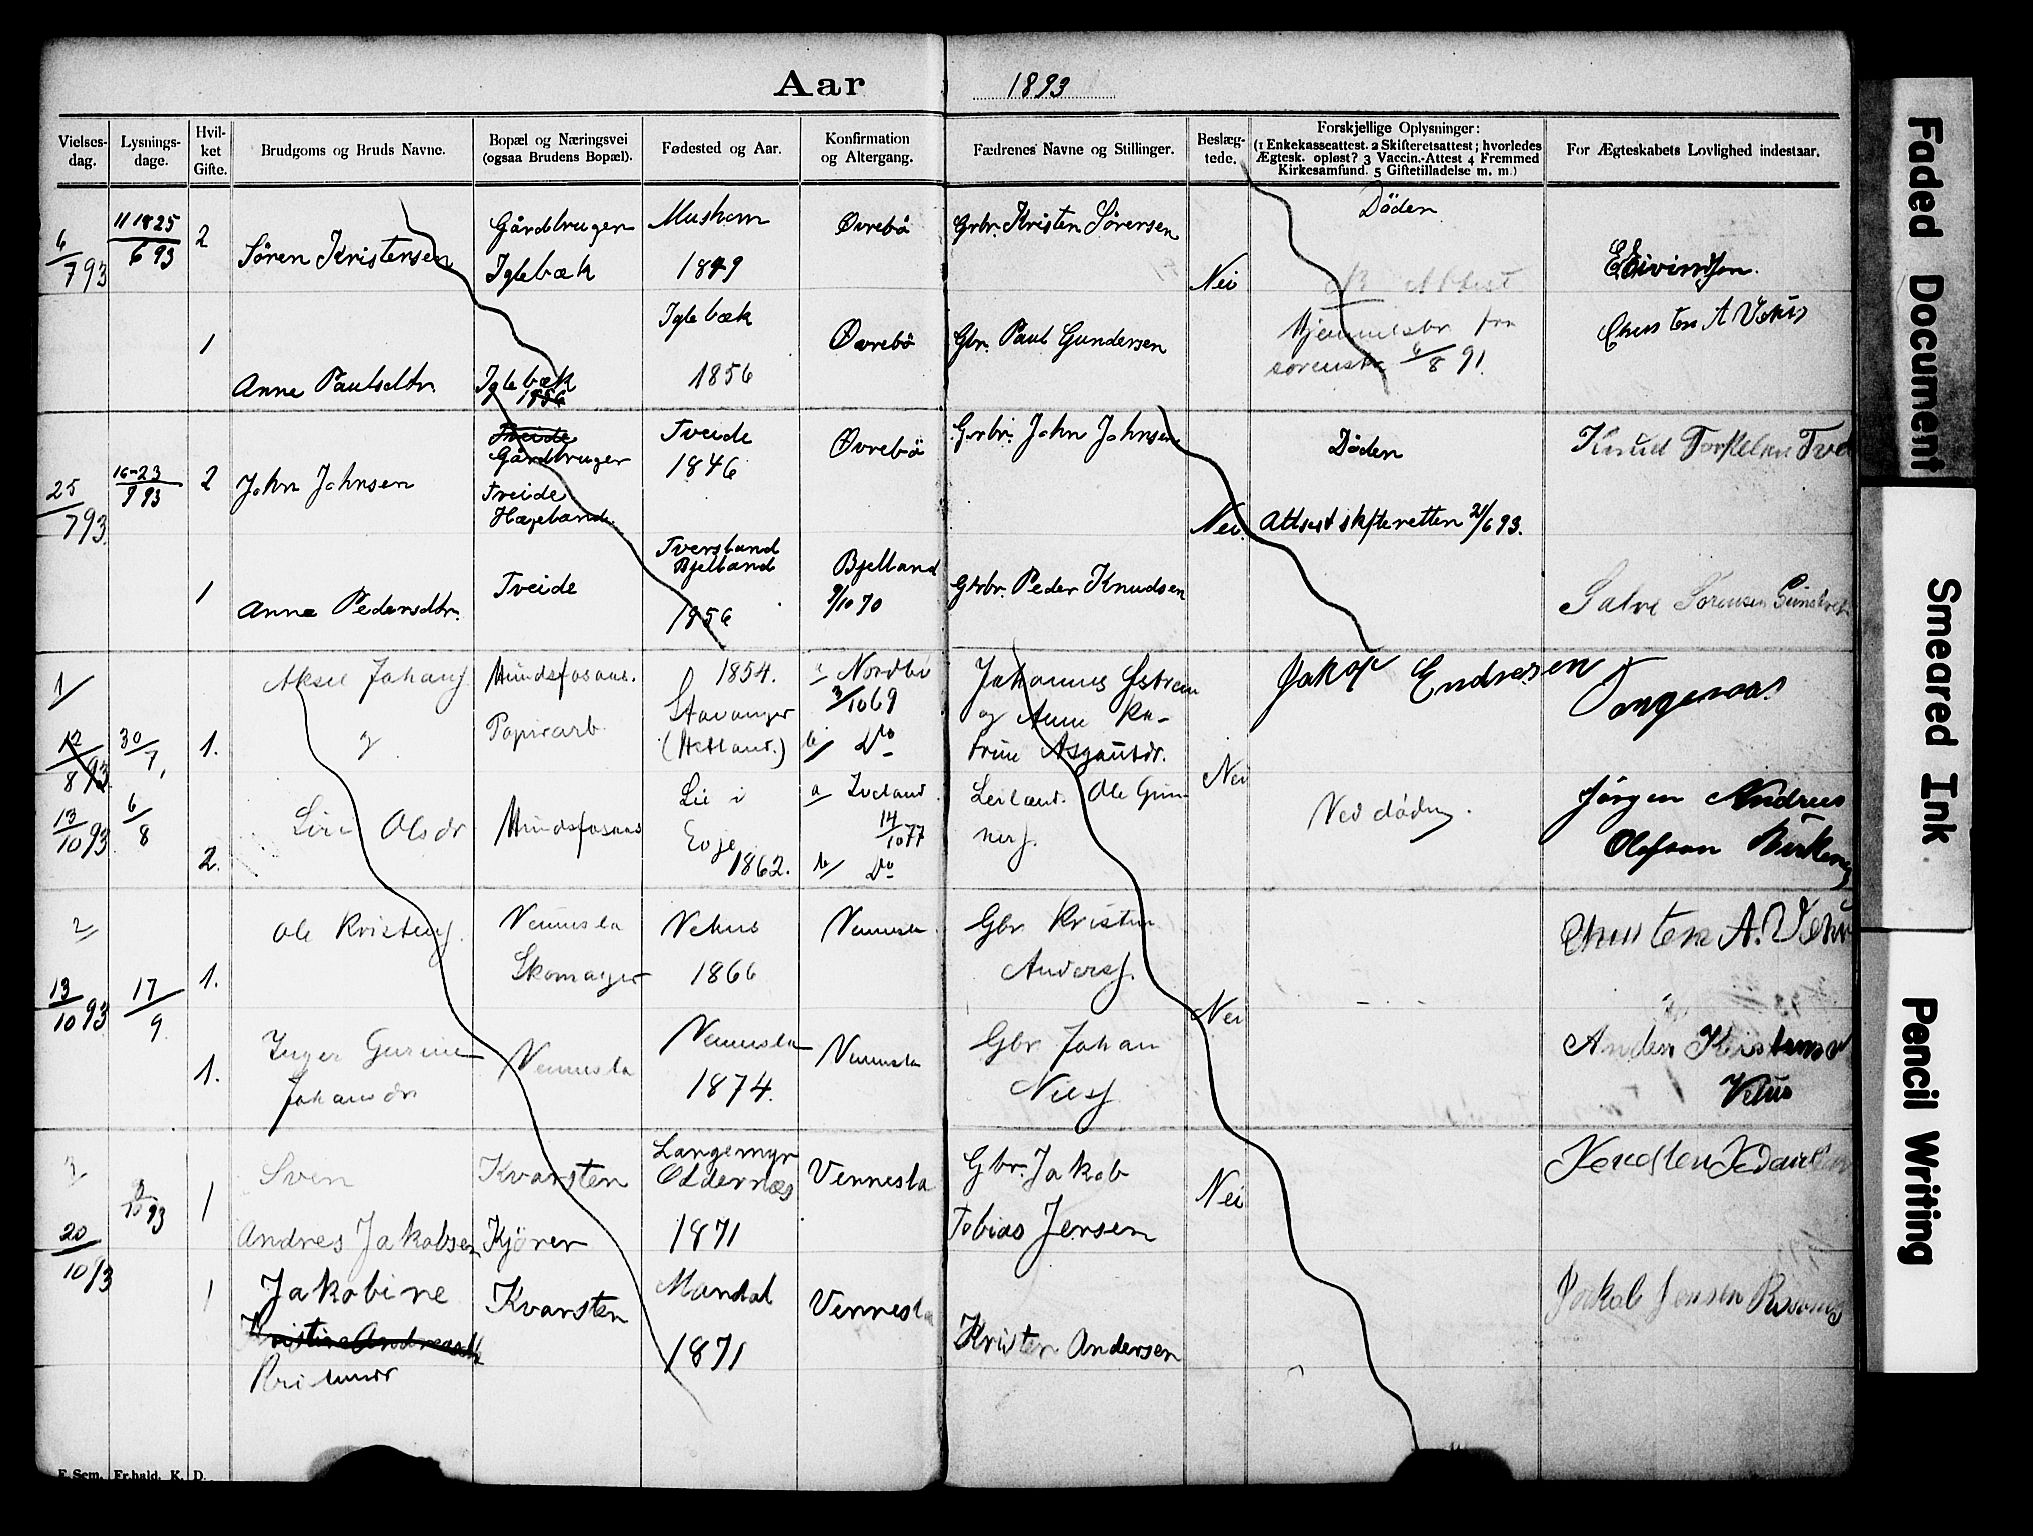 Aar 1893
Vielses-dag. Lysnings-dage. Hvil-ket Gifte. Brudgoms og Bruds Navne. Bopæl og Næringsvei (ogsaa Brudens Bopæl). Fødested og Aar. Konfirmation og Altergang. Fædrenes Navne og Stillinger. Beslæg-tede. Forskjellige Oplysninger: (1 Enkekasseattest. 2 Skifteretsattest; hvorledes Ægtesk. opløst? 3 Vaccin.-Attest 4 Fremmed Kirkesamfund. 5 Giftetilladelse m. m.) For Ægteskabets Lovlighed indestaar.
6/7 93 11 18 25/6 93 2 Søren Kristensen Gårdbruger Iglebæk 1849 Øvrebö Grbr. Kristen Sørensen Nei Döden
1 Anne Paulsdtr. Iglebæk 1856 Iglebæk 1856 Øvrebö Gbr. Paul Gundersen 6/8 91.
25/7 93. 16-23/7 93 2 John Johnsen Tveide Gårdbruger Tveide Hægeland. Tveide 1846 Øvrebö Grbr. John Johnsen Nei. Döden Attest skifteretten 21/6 93. Knud
1 Anne Pedersdtr. Tveide Tversland Bjelland 1856 Bjelland 9/10 70 Gbr. Peder Knudsen Salve Sørensen
1/ 12/8 93 30/7, 1. Aksel Johans. Hundsfosaas. Papirarb. 1854. Stavanger (Hetland.) 3/10 69 b/ Do Johannes og Anne Ka-trine Jakop Endresen
og
13/10 93 6/8 2. Olsdr Hundsfosaas Lie i Evje 1862. a Iveland. 14/10 77 b/ Do Ole Gun-ners. Nei Ved døden. Jørgen Andreas Olafson
2/ 13/10 93 17/9 1. Ole Kristens. Vennesla Skomager Vehus 1866 Vennesla Gbr Kristen Anders. Nei - . - Christen A. Vehus
1. Inger Gurine Johansdr Vennesla Vennesla 1874. Vennesla Gbr Johan Niels. Anders Kristensen Vehus
3/ 20/10 93 93 1 Sven Andres Jakobsen Kvarsten Kjörer Langemyr Oddernæs 1871 Vennesla Gbr. Jakob Tobias Jensen Nei
1 Jakobine Kristine Andreasdtr Kvarsten Mandal 1871 Vennesla Kristen Andersen Jakob Jensen
F. Sem, Fr.hald. K. D.
Faded Document
Smeared Ink
Pencil Writing